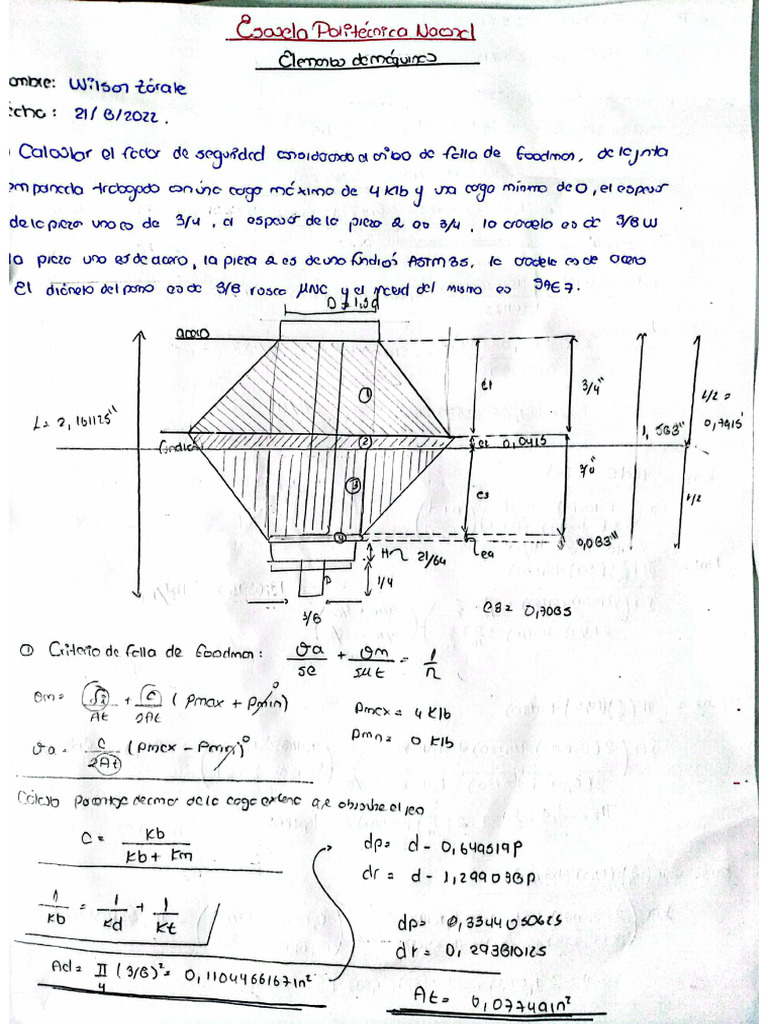 Escuela Politécnica Nacional
Elementos de máquinas
ombre: Wilson Zárate
echa: 21/8/2022.
Calcular el factor de seguridad considerando el criterio de falla de Goodman, de la junta
empernada trabajado con una carga máxima de 4 Klb y una carga mínimo de 0, el espesor
de la pieza uno es de 3/4, el espesor de la pieza 2 es 3/4, la arandela es de 3/8 W
la pieza uno es de acero, la pieza 2 es de una fundición ASTM 35, la arandela es de acero
El diámetro del perno es de 3/8 rosca UNC y el grado del mismo es SAE 7.
D = 1,5d
acero
①
e1
3/4"
L/2 =
0,7915'
L= 2,161125"
1,583"
Fundición
②
e2 0,0415
3/4"
③
e3
L/2
④
e4
0,083"
H~ 21/64
1/4
3/8
e3= 0,7085
① Criterio de falla de Goodman: σa/se + σm/sut = 1/n
σm= Fi/At + C/2At (Pmax + Pmin) 0
Pmax = 4 Klb
σa = C/2At (Pmax - Pmin) 0
Pmin = 0 klb
Cálculo Porcentaje de la carga externa que absorbe el
C = kb/(kb + km)
dp= d - 0,649519p
dr = d - 1,299038p
1/kb = 1/kd + 1/kt
dp= 0,3344050625
dr = 0,293810125
Ad = π/4 (3/8)² = 0,1104466167in²
At = 0,0774 in²